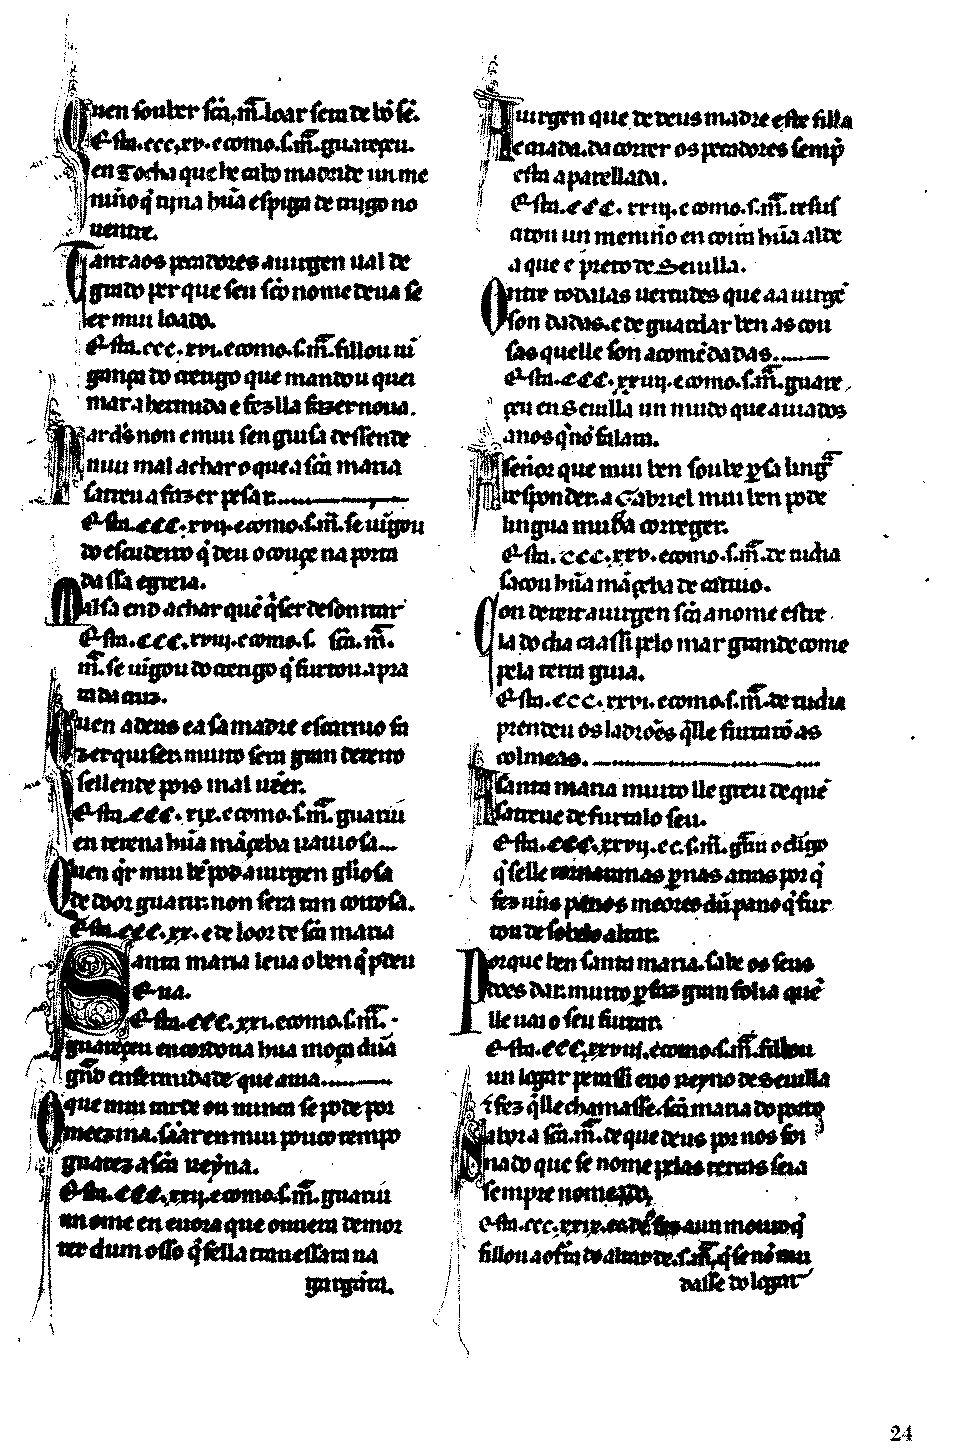 Quen souber scã.mª.loar sera de bõ sẽ.
Esta.ccc.xv.como.s.mª.guareçeu.
en Tocha que he cabo madride un me
niño q̇ tijna hũa espiga de trigo no
uentre.
Tant aos pecadores a uirgen ual de
grado per que seu scõ nome deua se
er mui loado.
Esta.ccc.xvi.como.s.mª.fillou ui
gança do crerigo que mandou quei
mar a hermida e fezlla fazer noua.
Par ds̃ non e mui sen guisa dessende
muu mal achar o que a scã maria
satreu a fazer pesar.
Esta.ccc.xvij.como.s.mª.se uigou
do escudeiro q̇ deu o couçe na porta
da ssa egreia.
Mal sa end achar quẽ q̇ser desonrrar
Esta.ccc.xviij.como.s. scã.mª.
mª.se uigou do crerigo q̇ furtou a pra
ta da cruz.
Quen a deus e a sa madre escarnno fa
zer quiser. muito sera gran dereito
sellende pois mal uẽer.
Esta.ccc.xix.como.s.mª.guariu
en terena hũa mãçeba rauiosa
Quen q̇r mui bẽ pod a uirgen g̃liosa
de door guarir. non sera tan coitosa.
Esta.ccc.xx. e de loor de scã maria
Santa maria leua o ben q̇ perdeu
Eua.
Esta.ccc.xxi.como.s.mª.
guareçeu en cordoua hũa moça dũa
g̃nd enfermidade que auia
O que mui tarde ou nunca se pode por
meezina. sãar en mui pouco tempo
guarez a scã reỹna.
Esta.ccc.xxij.como.s.mª.guariu
un ome en euora que ouuera de mor
rer dum osso q̇ sella trauessara na
garganta.
A uirgen que de deus madre este filla
e criada. da correr os pecadores semp̃
esta aparellada.
Esta.ccc.xxiij.como.s.mª.resus
citou un menino en coira hũa alde
a que e preto de Seuilla.
Ontre todalas uertudes que aa uirgẽ
son dadas. e de guardar ben as cou
sas quelle son acomẽdadas.
Esta.ccc.xxiiij.como.s.mª.guare
çeu en Seuilla un mudo que auia dos
anos q̇ nõ falara.
A sen̄or que mui ben soube p̲ sa ling̃
responder. a Gabriel mui ben pode
lingua muda correger.
Esta.ccc.xxv.como.s.mª.de tudia
sacou hũa mãçeba de catiuo.
Con dereit a uirgen scã a nome estre
la do dia ca assi pelo mar grande come
pela terra guia.
Esta.ccc.xxvi.como.s.mª.de tudia
prendeu os ladrões q̇lle furtarõ as
colmeas.
A santa maria muito lle greu de quẽ
satreue de furtalo seu.
Esta.ccc.xxvij.c.c.s.mª. g̃riu o cligo
q̇ selle tornaram as p̲nas atras por q̇
fez ũus panos meores dũ pano q̇ fur
tou de sobelo altar.
Porque ben santa maria. sabe os seus
dões dar. muito p̲ faz gran folia quẽ
lle uai o seu furtar.
Esta.ccc.xxviij.como.s.mª.fillou
un logar pera ssi eno reyno de seuilla
⁊ fez q̇lle chamasse. scã maria do porto
Sabor a scã.mª.de que deus por nos foi
nado que se nome pelas terras seia
sempre nomeado.
Esta.ccc.xxix. aun mouro q̇
fillou a oferta do altar de.s.mª. q̇ se nõ mu
dasse do logar
24